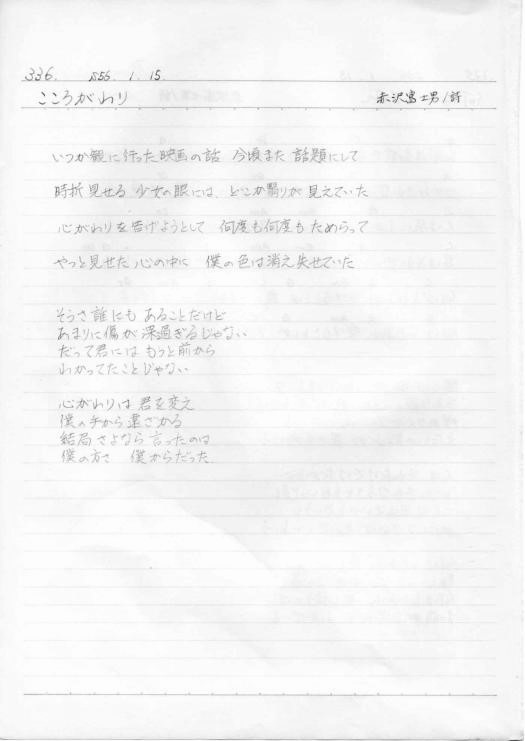 336. S56. 1. 15.
こころがわり 赤沢富士男/詩
いつか観に行った映画の話 今頃また 話題にして
時折見せる 少女の眼には、どこか翳りが 見えていた
心がわりを告げようとして 何度も何度も ためらって
やっと見せた 心の中に 僕の色は消え失せていた
そうさ誰にも あることだけど
あまりに傷が 深過ぎるじゃない
だって君には もっと前から
わかってたことじゃない
心がわりは 君を変え
僕の手から 遠ざかる
結局 さよなら 言ったのは
僕の方さ 僕からだった